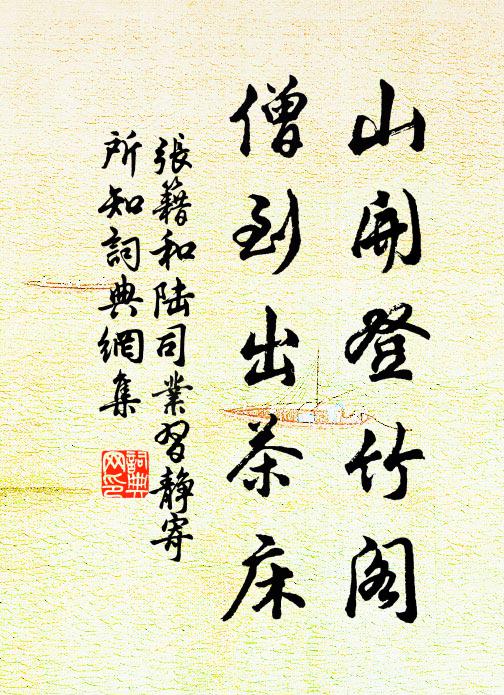 山開登竹阁
僧到出茶床
張籍和陆司業習静寄
所知詞典網集
詞典
网印